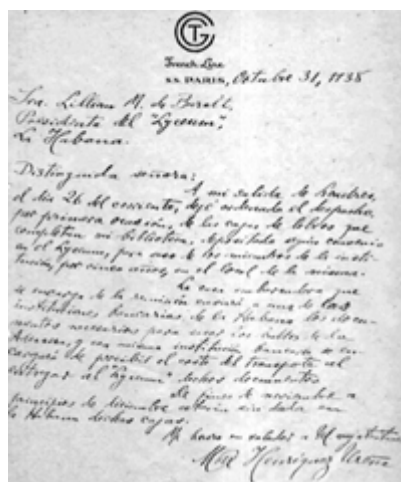 CGT
French Line
S.S. PARIS, Octubre 31, 1938
Sra. Lillian M. de
Presidenta del "Lyceum",
La Habana.
Distinguida señora:
A mi salida de Londres,
el día 26 del corriente, dejé ordenado el despacho,
por primera ocasión, de las cajas de libros que
completan mi biblioteca, depositada según convenio
en el Lyceum, para uso de los miembros de la insti-
tución, por cinco años, en el local de la misma.
La casa embarcadora que
se encarga de la remisión enviará a una de las
instituciones bancarias de la Habana los docu-
mentos necesarios para
Aduana, y esa misma institución bancaria se en-
cargará de percibir el costo del transporte al
entregar al "Lyceum" dichos documentos.
De fines de noviembre a
principios de diciembre estarán sin duda en
la Habana dichas cajas.
Me honro en saludar a Ud.
Max Henríquez Ureña